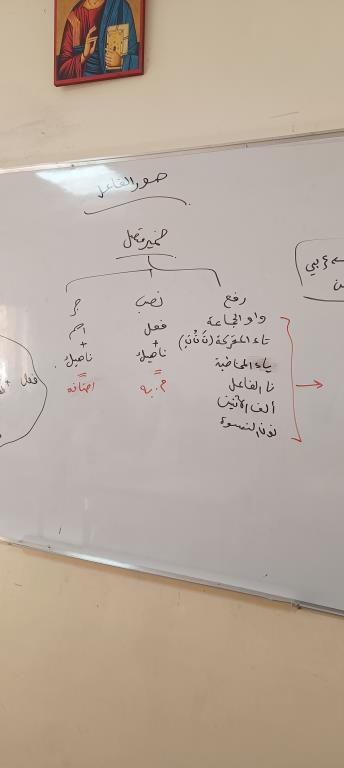 صور الفاعل
ضمير متصل
رفع نصب جر
واو الجماعة
تاء المتحركة (تَ تُ تِ)
ياء المخاطبة
نا الفاعل
ألف الاثنين
نون النسوة
فعل
+
ناهيك
=
م. به
اسم
+
ناهيك
=
إضافة
فعل +